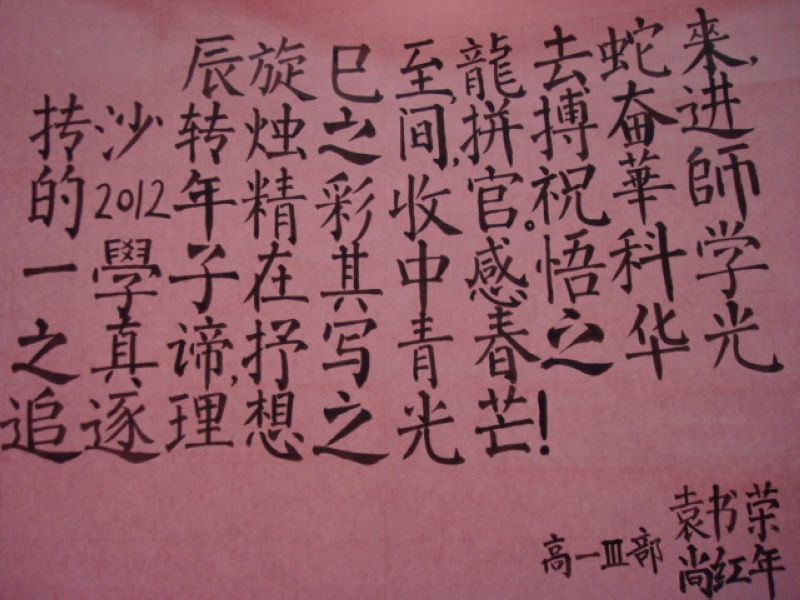 辰旋巳至,龍去蛇來,
抟沙转烛之间,拼搏奮进
的2012年精彩收官。祝華師
一學子在其中感悟科学
之真谛,抒写青春之华光
追逐理想之光芒!
高一Ⅲ部 袁书荣
尚红年